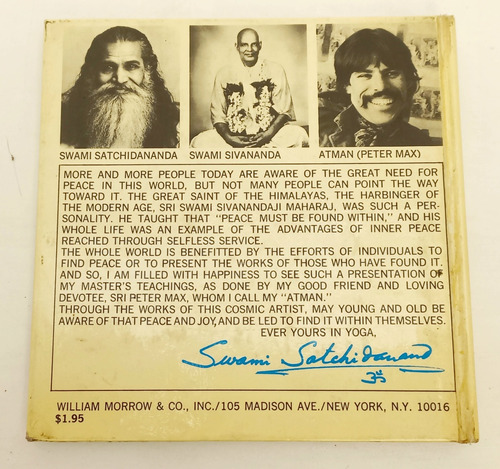 SWAMI SATCHIDANANDA SWAMI SIVANANDA ATMAN (PETER MAX)
MORE AND MORE PEOPLE TODAY ARE AWARE OF THE GREAT NEED FOR
PEACE IN THIS WORLD, BUT NOT MANY PEOPLE CAN POINT THE WAY
TOWARD IT. THE GREAT SAINT OF THE HIMALAYAS, THE HARBINGER OF
THE MODERN AGE, SRI SWAMI SIVANANDAJI MAHARAJ, WAS SUCH A PER-
SONALITY. HE TAUGHT THAT "PEACE MUST BE FOUND WITHIN," AND HIS
WHOLE LIFE WAS AN EXAMPLE OF THE ADVANTAGES OF INNER PEACE
REACHED THROUGH SELFLESS SERVICE.
THE WHOLE WORLD IS BENEFITTED BY THE EFFORTS OF INDIVIDUALS TO
FIND PEACE OR TO PRESENT THE WORKS OF THOSE WHO HAVE FOUND IT.
AND SO, I AM FILLED WITH HAPPINESS TO SEE SUCH A PRESENTATION OF
MY MASTER'S TEACHINGS, AS DONE BY MY GOOD FRIEND AND LOVING
DEVOTEE, SRI PETER MAX, WHOM I CALL MY "ATMAN."
THROUGH THE WORKS OF THIS COSMIC ARTIST, MAY YOUNG AND OLD BE
AWARE OF THAT PEACE AND JOY, AND BE LED TO FIND IT WITHIN THEMSELVES.
EVER YOURS IN YOGA,
Swami Satchidanand
ॐ
WILLIAM MORROW & CO., INC./105 MADISON AVE./NEW YORK, N.Y. 10016
$1.95